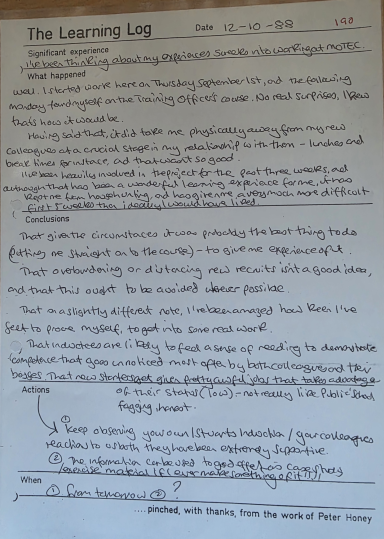 The Learning Log Date 12-10-88 190
Significant experience
I've been thinking about my experiences 5 weeks into working at MOTEC.
What happened
Well. I started work here on Thursday September 1st, and the following
Monday found myself on the Training Officer's course. No real surprises, I knew
that's how it would be.
Having said that, it did take me physically away from my new
colleagues at a crucial stage in my relationship with them - lunches and
break times for instance, and that wasn't so good.
I've been heavily involved in the project for the past three weeks, and
although that has been a wonderful learning experience for me, it has
kept me from househunting, and has given me a very much more difficult
first 5 weeks than ideally I would have liked.
Conclusions
That given the circumstances it was probably the best thing to do
(putting me straight on to the course) - to give me experience of it.
That overburdening or distancing new recruits isn't a good idea,
and that this ought to be avoided wherever possible.
That on a slightly different note, I've been amazed how keen I've
felt to prove myself, to get into some real work.
That inductees are likely to feel a sense of needing to demonstrate
competence that goes unnoticed most often by both colleagues and their
bosses. That new starters get given pretty awful jobs that takes advantage
of their status (low) - not really like Public School
fagging honest.
Actions
① Keep observing your own / Stuart's induction / your colleagues
reactions to us both they have been extremely supportive.
② The information can be used to good effect as a case study
/exercise material if I ever make something of it!!!
When
① From tomorrow ② ?
....pinched, with thanks, from the work of Peter Honey